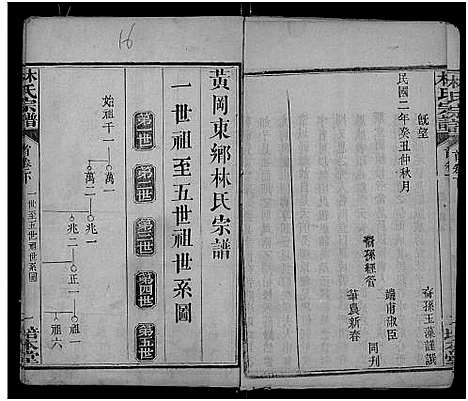 林氏宗譜
首卷下
既望
民國二年癸丑仲秋月
裔孫玉藻謹譔
裔孫經管
端甫淑臣
華農新春
同刋
16
黃岡東鄉林氏宗譜
一世祖至五世祖世系圖
第一世
第二世
第三世
第四世
第五世
始祖千一
萬一
萬二
兆一
兆二
正一
祖一
祖六
林氏宗譜
首卷下
一世至五世世系圖
一